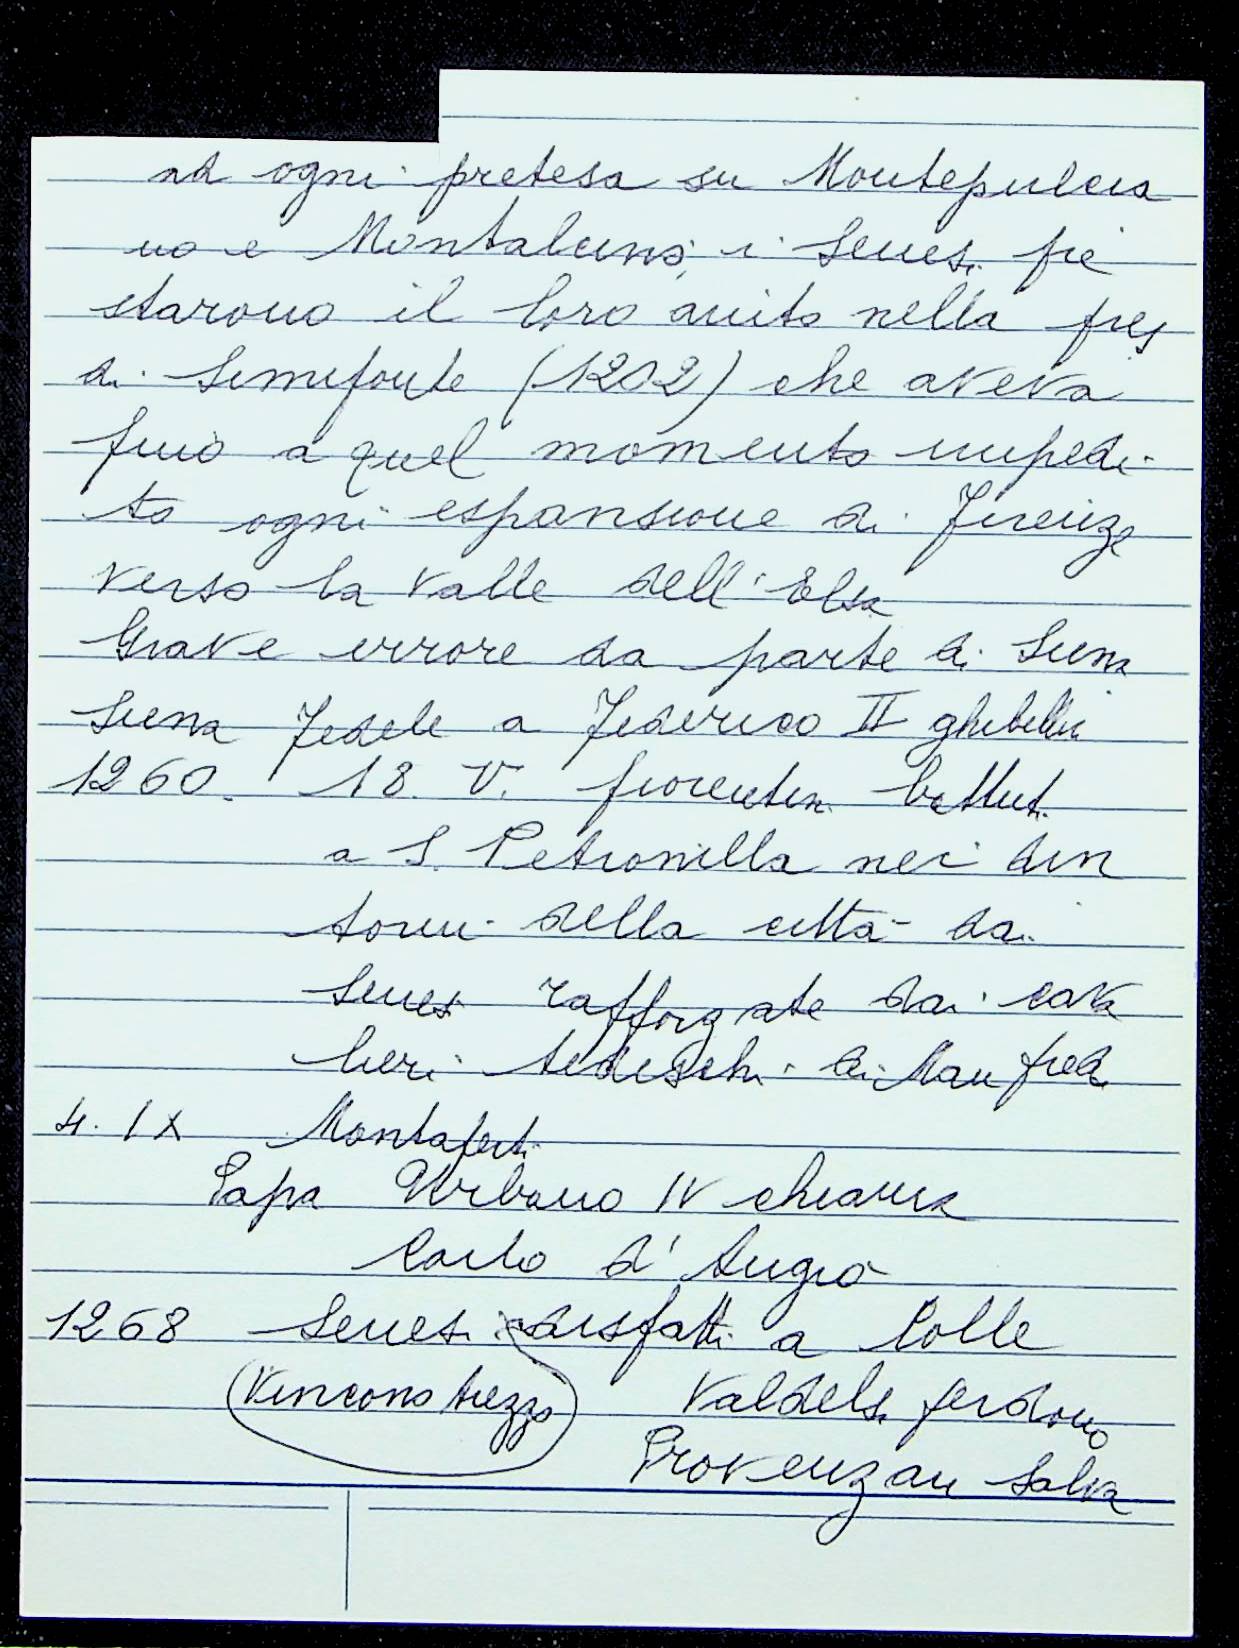 ad ogni pretesa su Montepulcia
no e Montalcino, i Senesi pre
starono il loro aiuto nella pres
di Semifonte (1202) che aveva
fino a quel momento impedi-
to ogni espansione di Firenze
verso la valle dell'Elsa
Grave errore da parte di Siena
Siena fedele a Federico II ghibellin
1260. 18. V. fiorentini battuti
a S. Petronilla nei din
torni della città dai
Senesi rafforzate dai cava
lieri tedeschi di Manfredi
4. IX Montaperti
Papa Urbano IV chiama
Carlo d'Angiò
1268 Senesi disfatti a Colle
(Vincono Arezzo) Valdelsa perdono
Provenzan Salva